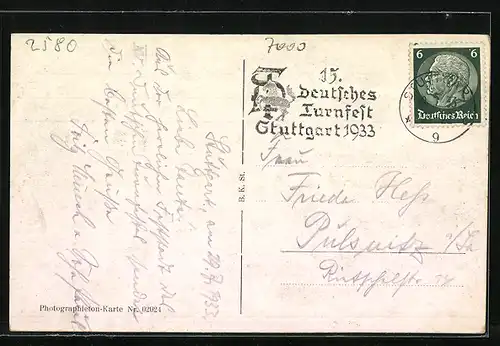 2580
7000
15.
Deutsches
Turnfest
Stuttgart 1933
6 6
Deutsches Reich
9
Frau
Friede Heß
Pulsnitz i/Sa
Stuttgart, am 29.7.1933.
Liebe
Aus der herrlichen Feststadt des
XV. Deutschen Turnfestes senden
die besten Grüße
Fritz
B. K. St.
Photographieton-Karte Nr. 02024